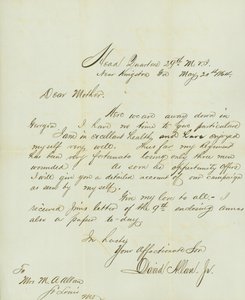 Head Quarters 29th M. V. I.
Near Kingston Ga May 20th 1864.
Dear Mother.
Here we are away down in
Georgia I have no time to give particulars
I am in excellent health, and have enjoyed
my self very well. Thus far my Regiment
has been very fortunate losing only three men
wounded. As soon as opportunity offers
I will give you a detailed account of our campaign
as seen by my self.
Give my love to all. I
received Jim's letter of the 9th enclosing
also a paper to-day.
In haste
Your Affectionate Son
David Allan Jr.
To
Mrs. M. A. Allan
St Louis
Mo.